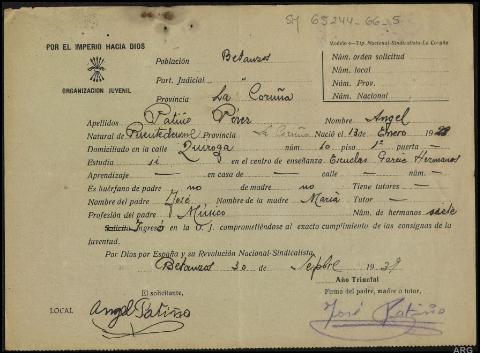 SM 65244-66-5
POR EL IMPERIO HACIA DIOS
ORGANIZACION JUVENIL
Modelo 6—Tip. Nacional-Sindicalista-La Coruña
Población Betanzos
Part. Judicial "
Provincia La Coruña
Núm. orden solicitud
Núm. local
Núm. Prov.
Núm. Nacional
Apellidos Patiño Pérez Nombre Angel
Natural de Puentedeume Provincia La Coruña Nació el 13 de Enero 1928
Domiciliado en la calle Quiroga núm. 10 piso 1º puerta —
Estudia si en el centro de enseñanza Escuelas García Hermanos
Aprendizaje — en casa de — calle — núm. —
Es huérfano de padre no de madre no Tiene tutores —
Nombre del padre José Nombre de la madre María Tutor —
Profesión del padre Músico Núm. de hermanos siete
Solicita Ingresó en la O. J. comprometiéndose al exacto cumplimiento de las consignas de la
juventud.
Por Dios por España y su Revolución Nacional-Sindicalista.
Betanzos 30 de Sepbre 1939
Año Triunfal
El solicitante,
Firma del padre, madre o tutor,
LOCAL
Angel Patiño
José Patiño
ARG